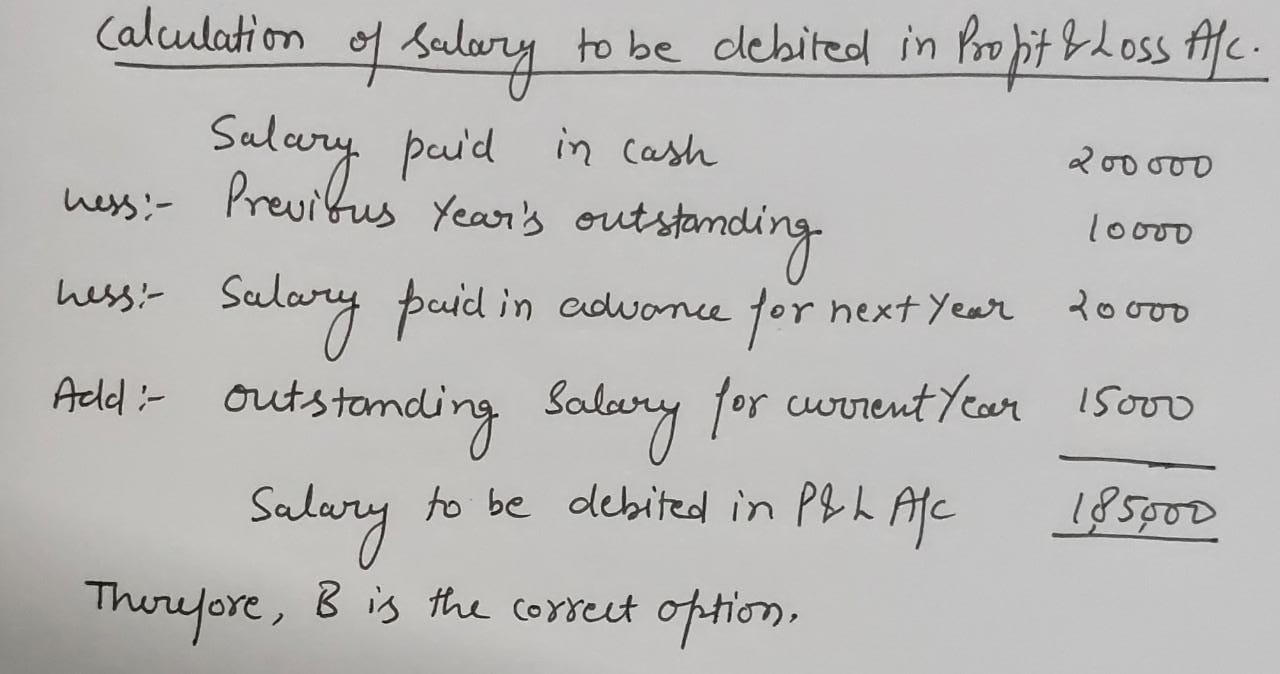 Calculation of Salary to be debited in Profit & Loss A/c.
Salary paid in cash 200000
Less:- Previous Year's outstanding 10000
Less:- Salary paid in advance for next Year 20000
Add:- outstanding Salary for current Year 15000
Salary to be debited in P&L A/c 185000
Therefore, B is the correct option.